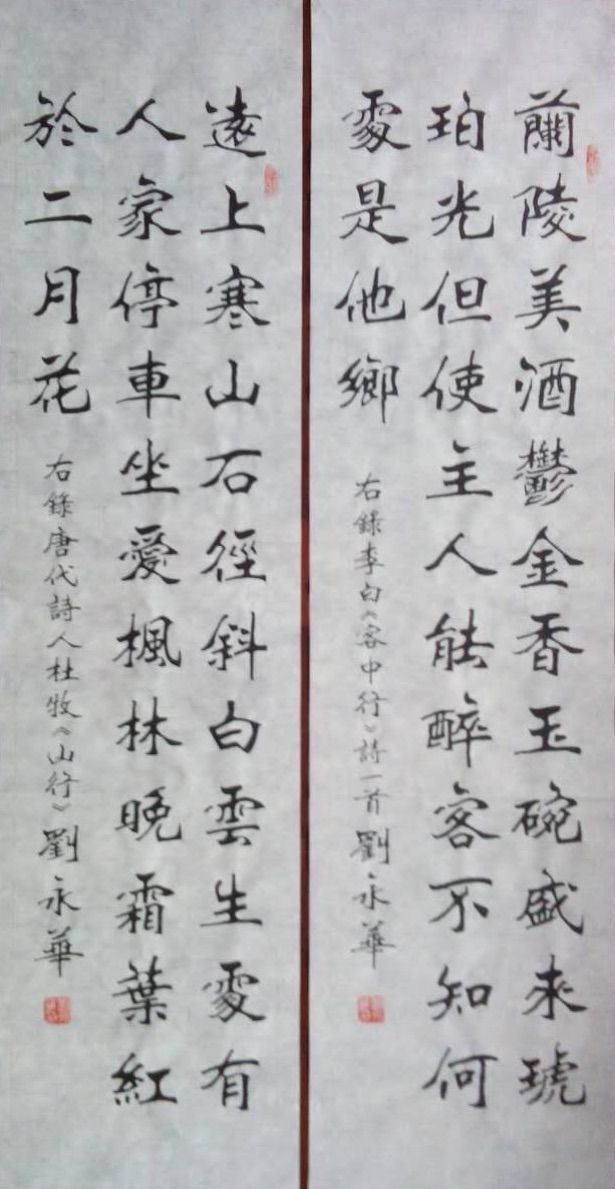 蘭陵美酒鬱金香玉碗盛來琥
珀光但使主人能醉客不知何
處是他鄉
右錄李白《客中行》詩一首 劉永華
遠上寒山石徑斜白雲生處有
人家停車坐愛楓林晚霜葉紅
於二月花
右錄唐代詩人杜牧《山行》 劉永華